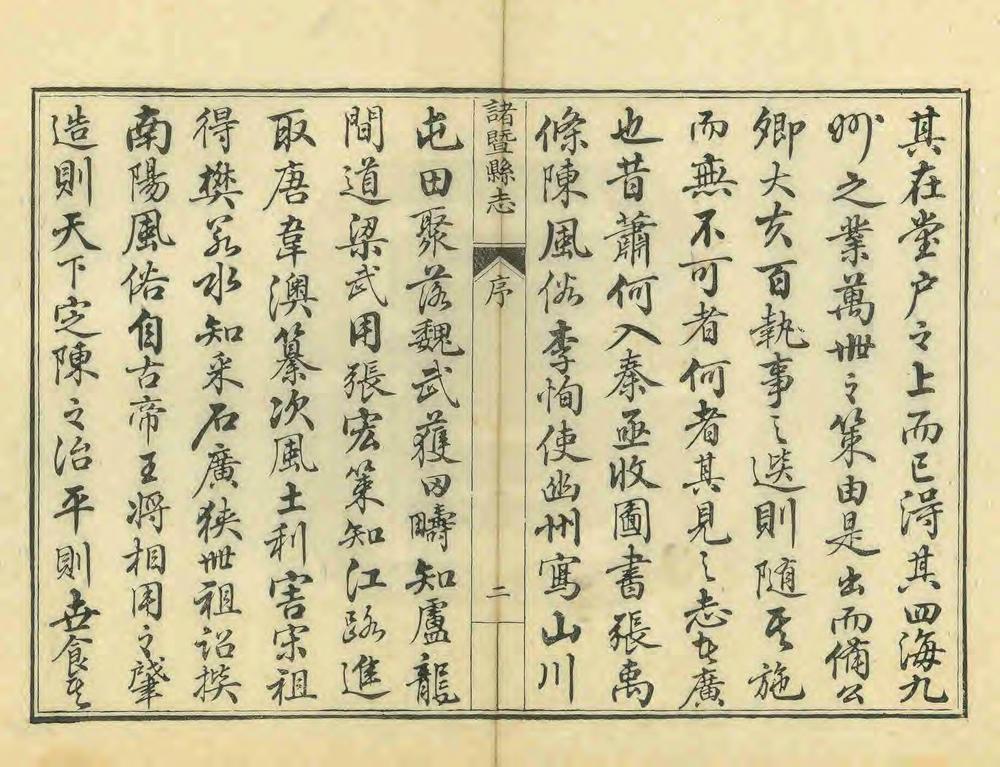 其在堂户之上而已得其四海九
州之業萬世之策由是出而備公
卿大夫百執事之選則随其施
而無不可者何者其見之志者廣
也昔蕭何入秦亟收圖書張禹
條陳風俗李恂使幽州寫山川
諸暨縣志
序
二
屯田聚落魏武獲田疇知盧龍
間道梁武用張宏策知江路進
取唐韋澳纂次風土利害宋祖
得樊若水知采石廣狹世祖詔撰
南陽風俗自古帝王將相用之肇
造則天下定陳之治平則世食其